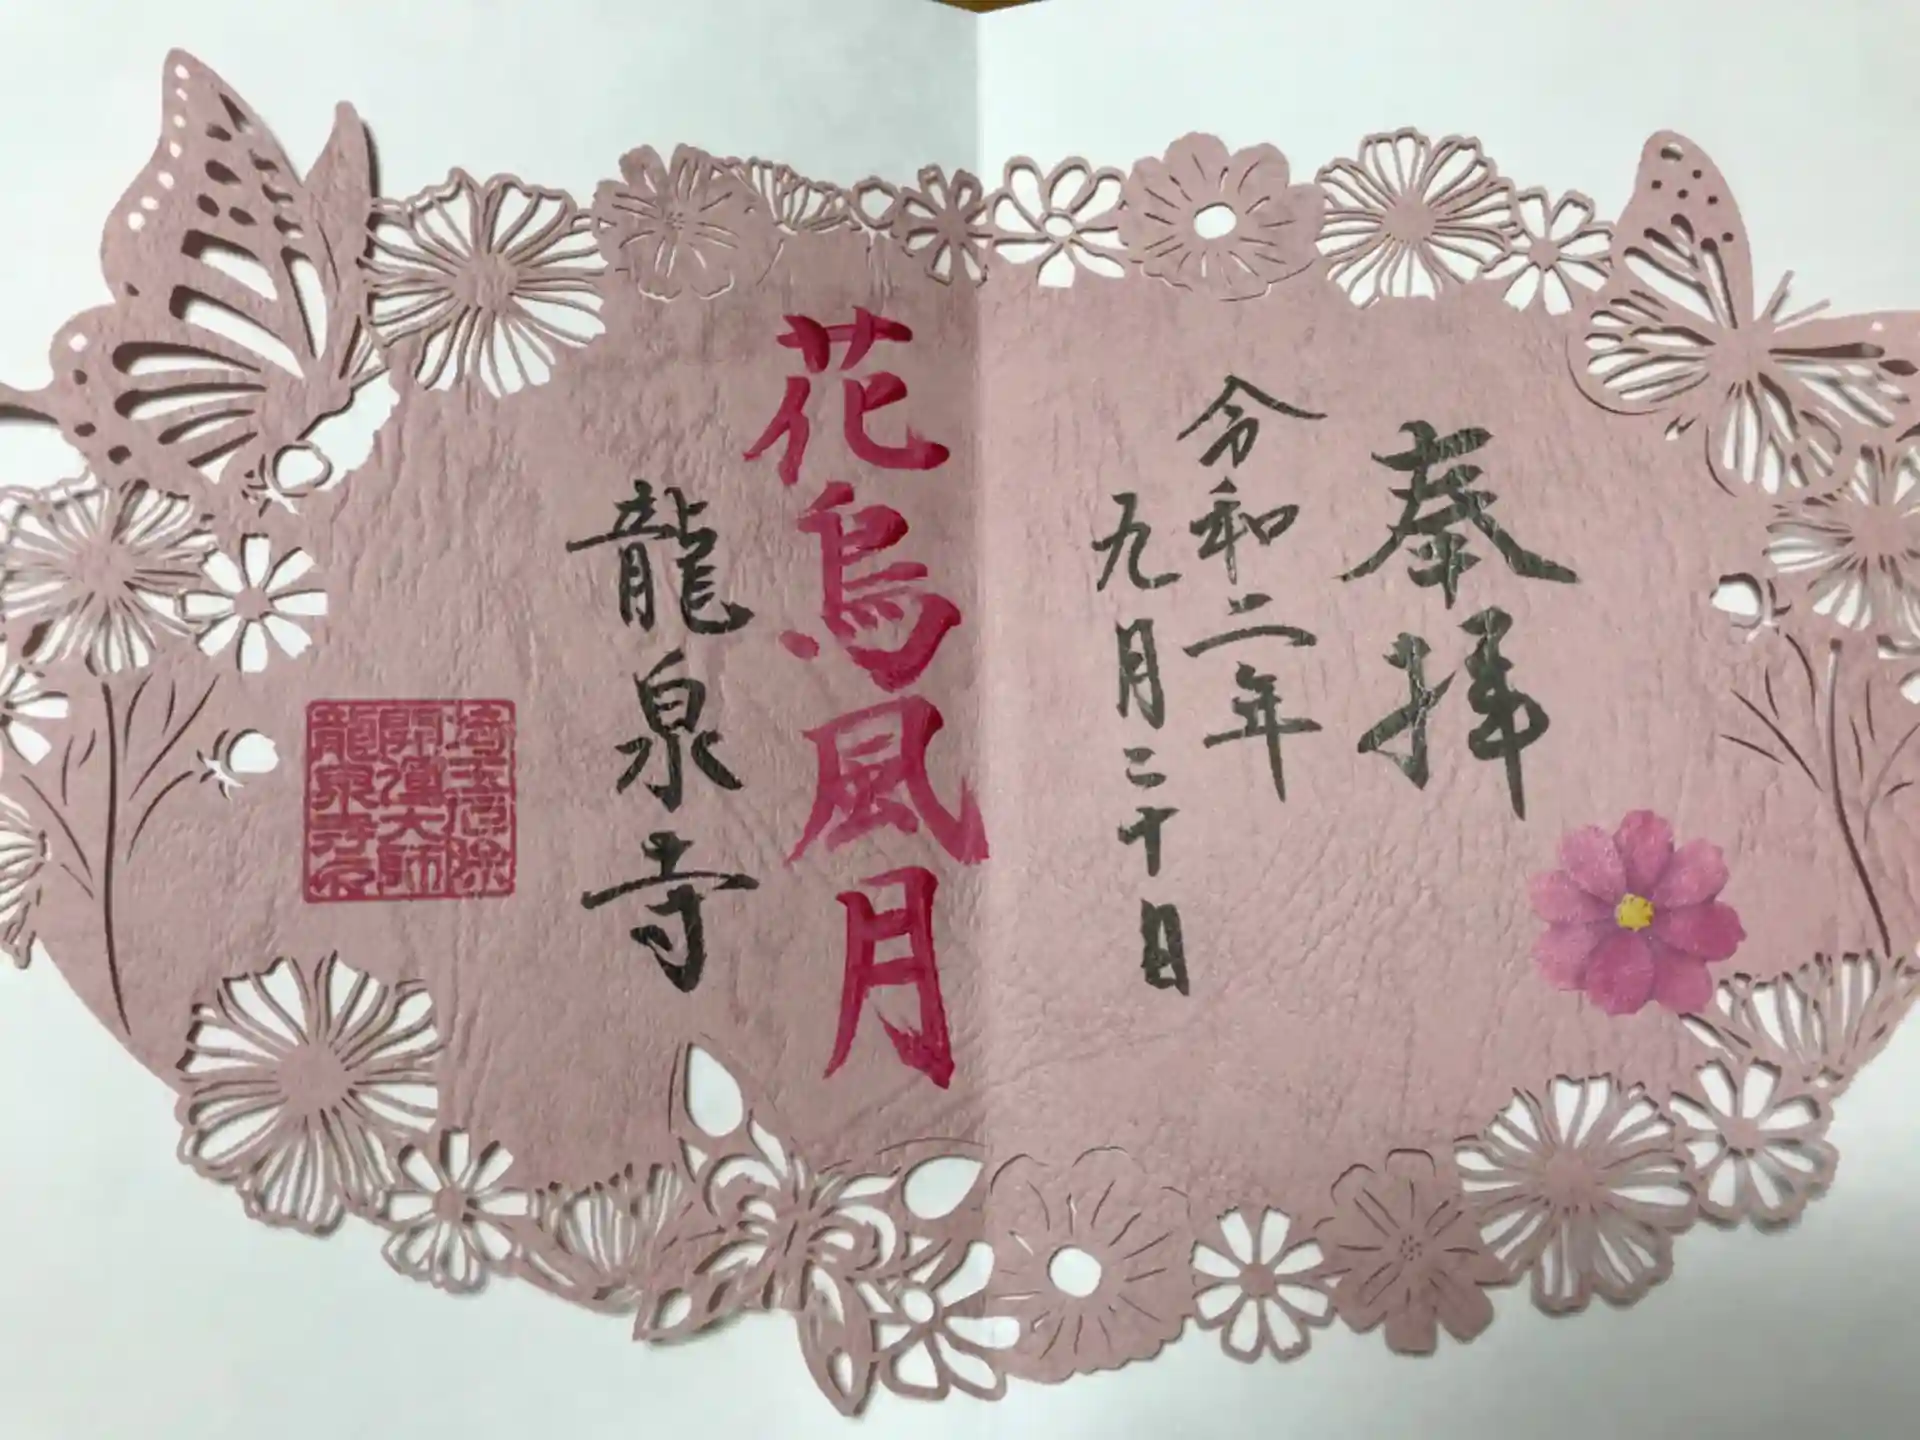 奉拝
令和二年
九月二十日
花鳥風月
龍泉寺
埼玉厄除
開運大師
龍泉寺印